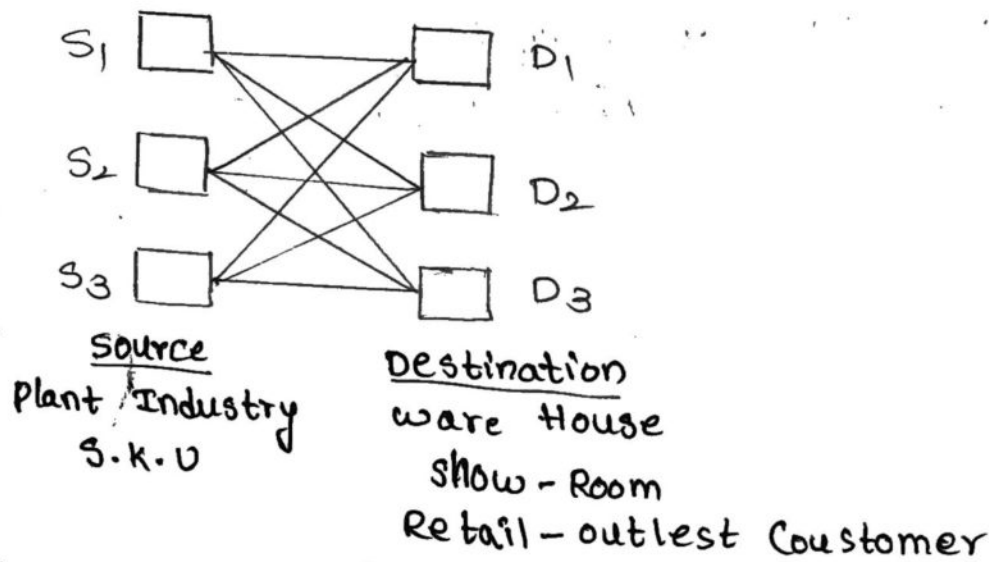 S1 D1
S2 D2
S3 D3
Source
Plant / Industry
S.K.U
Destination
ware House
show - Room
Retail - outlest Coustomer